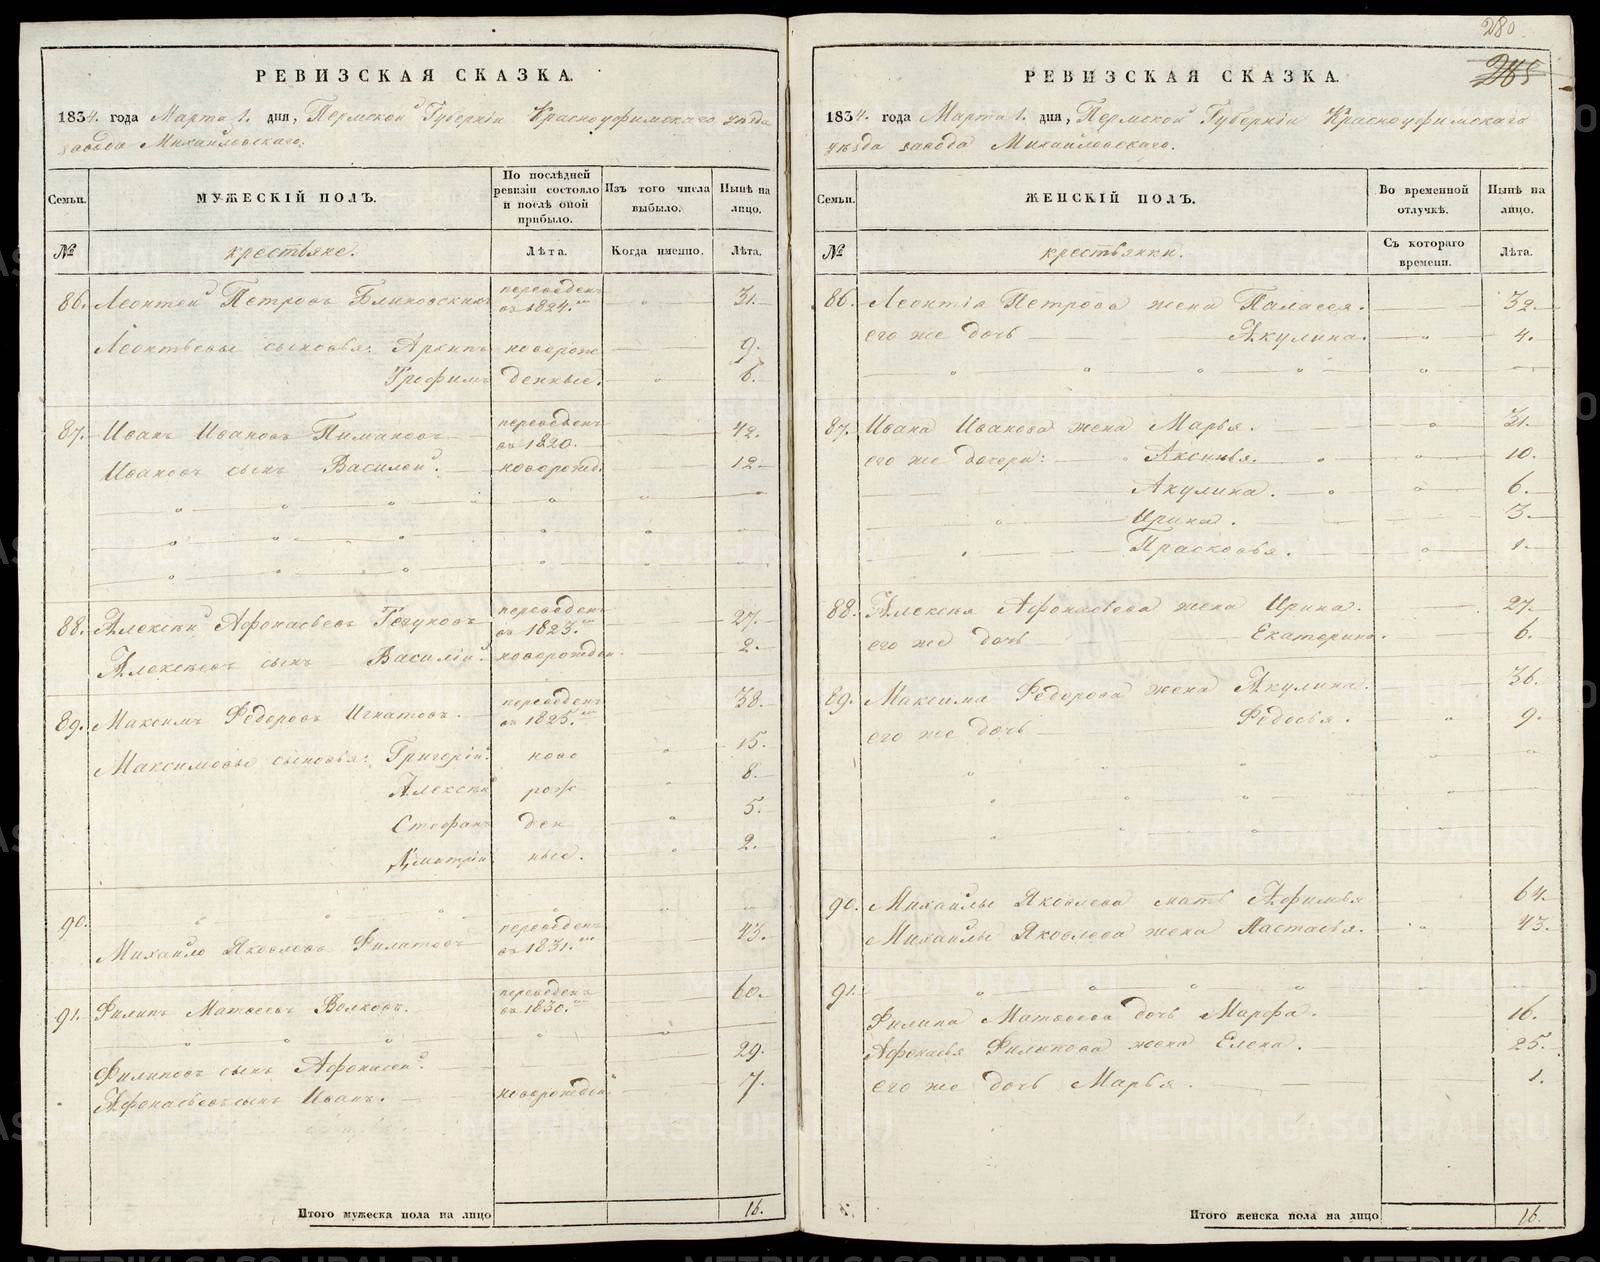 РЕВИЗСКАЯ СКАЗКА.
1834. года Марта 1. дня, Пермской Губерніи Красноуфимскаго уѣзда
завода Михайловскаго.
Семьи.
МУЖЕСКІЙ ПОЛЪ.
По послѣдней ревизіи состояло и послѣ оной прибыло.
Изъ того числа выбыло.
Нынѣ на лицо.
№
крестьяне.
Лѣта.
Когда именно.
Лѣта.
86. Леонтей Петровъ Блиновскихъ переведенъ въ 1824. 31.
Леонтьевы сыновья: Архипъ новорож 9.
Трофимъ денные. 6.
87. Иванъ Ивановъ Пимановъ переведенъ въ 1820. 42.
Ивановъ сынъ Василей. новорожд. 12.
88. Алексѣй Афонасьевъ переведенъ въ 1823. 27.
Алексѣевъ сынъ Василій. новорожден. 2.
89. Максимъ Федоровъ Игнатовъ. переведенъ въ 1825. 38.
Максимовы сыновья: Григорій. ново 15.
Алексѣй рож 8.
Стефанъ ден 5.
Дмитрій ные. 2.
90.
Михайло Яковлевъ Филатовъ переведенъ въ 1831. 43.
91. Филипъ Матвеевъ Волковъ. переведенъ въ 1830. 60.
Филиповъ сынъ Афонасей. 29.
Афонасьевъ сынъ Иванъ. новорожден 7.
Итого мужеска пола на лицо 16.
280
285
РЕВИЗСКАЯ СКАЗКА.
1834. года Марта 1. дня, Пермской Губерніи Красноуфимскаго
уѣзда завода Михайловскаго.
Семьи.
ЖЕНСКІЙ ПОЛЪ.
Во временной отлучкѣ.
Нынѣ на лицо.
№
крестьянки.
Съ котораго времени.
Лѣта.
86. Леонтія Петрова жена Палагея. 32.
его же дочь Акулина. 4.
87. Ивана Иванова жена Марья. 31.
его же дочери: Аксинья. 10.
Акулина. 6.
Ирина. 3.
Прасковья. 1.
88. Алексѣя Афонасьева жена Ирина. 27.
его же дочь Екатерина. 6.
89. Максима Федорова жена Акулина. 36.
его же дочь Федосья. 9.
90. Михайлы Яковлева мать Афимья 64.
Михайлы Яковлева жена Настасья. 43.
91.
Филипа Матвеева дочь Марфа. 16.
Афонасья Филипова жена Елена. 25.
его же дочь Марья. 1.
Итого женска пола на лицо 16.
METRIKI.GASO-URAL.RU